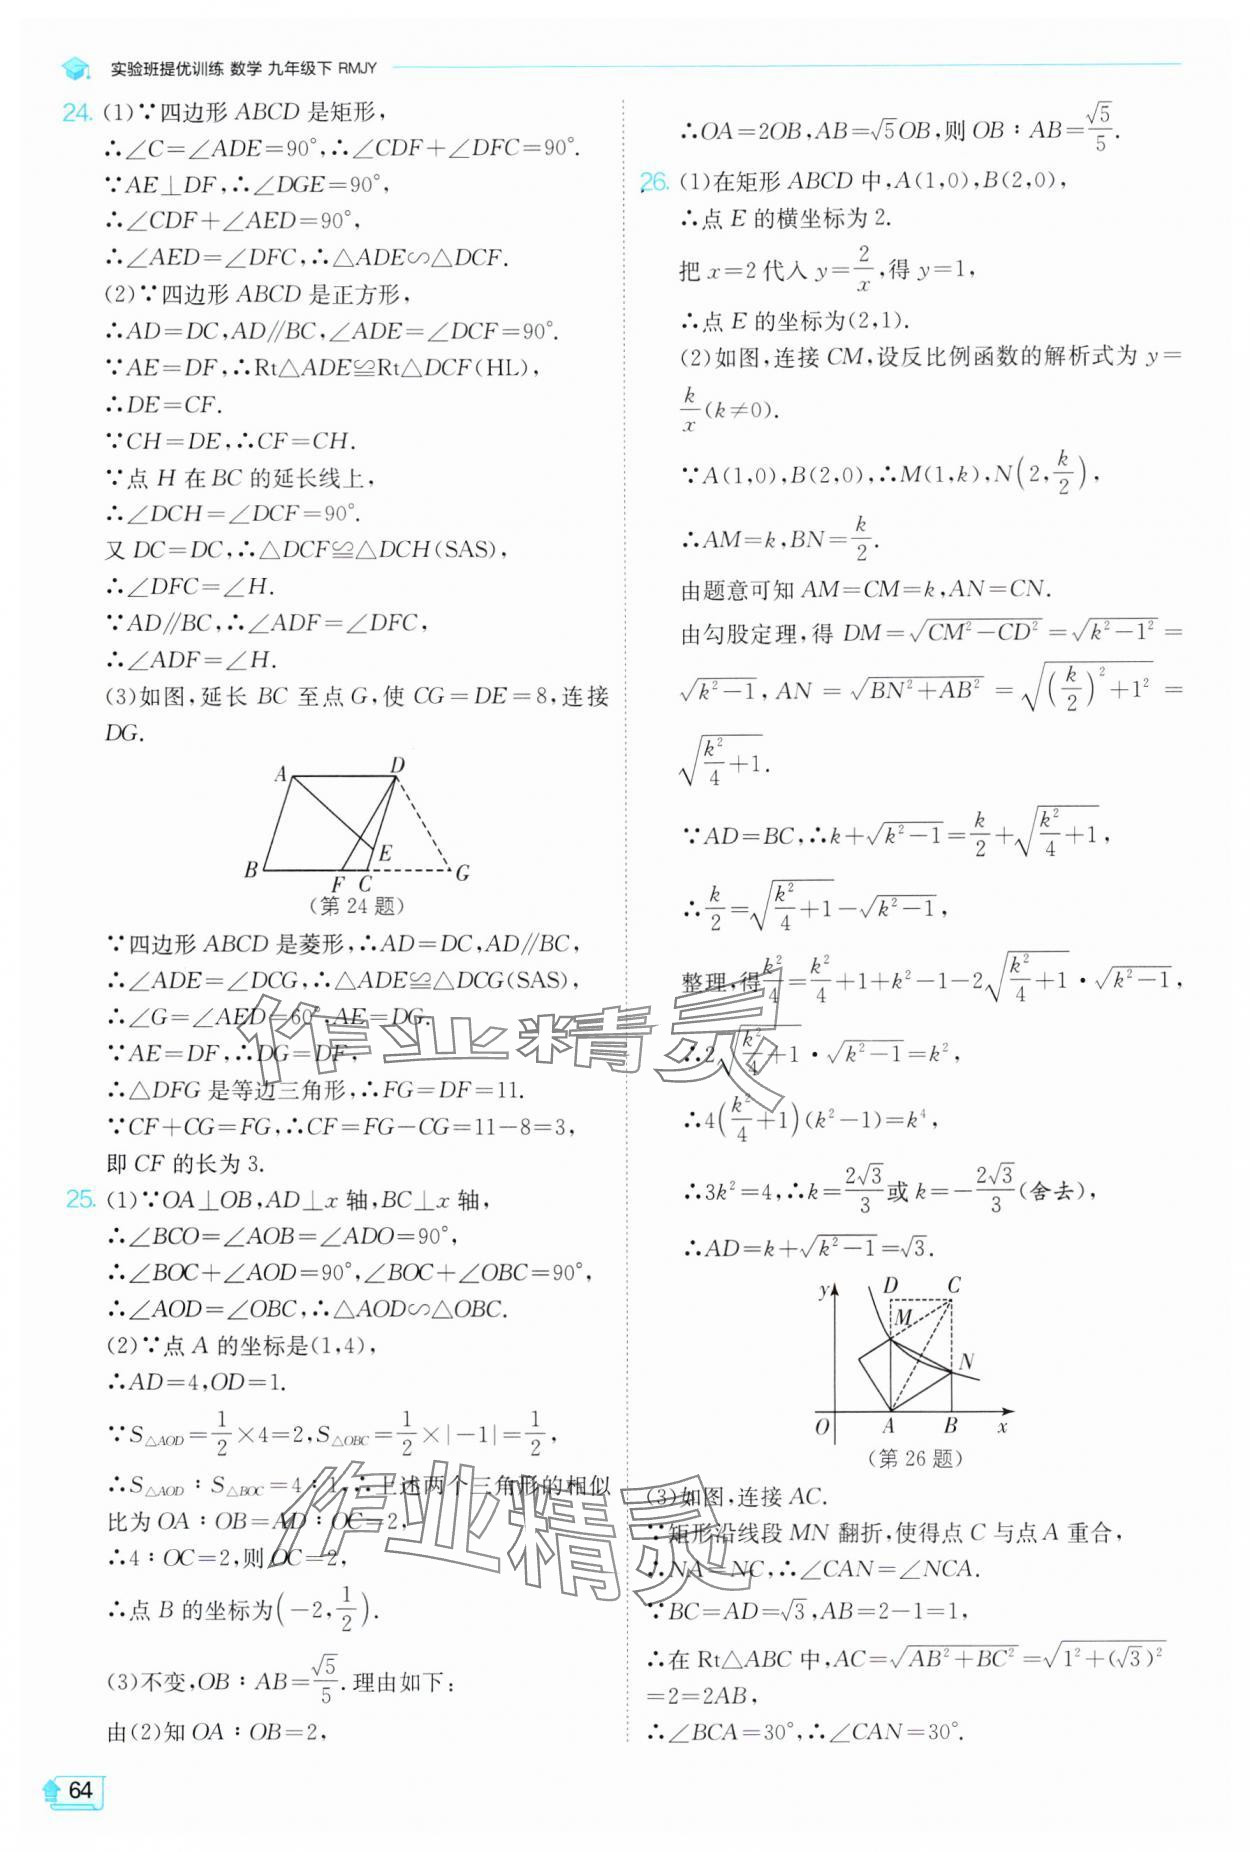 实验班提优训练 数学 九年级下 RMJY
24. (1)∵四边形 ABCD 是矩形,
∴∠C=∠ADE=90°,∴∠CDF+∠DFC=90°.
∵AE⊥DF,∴∠DGE=90°,
∴∠CDF+∠AED=90°,
∴∠AED=∠DFC,∴△ADE∽△DCF.
(2)∵四边形 ABCD 是正方形,
∴AD=DC,AD∥BC,∠ADE=∠DCF=90°.
∵AE=DF,∴Rt△ADE≌Rt△DCF(HL),
∴DE=CF.
∵CH=DE,∴CF=CH.
∵点 H 在 BC 的延长线上,
∴∠DCH=∠DCF=90°.
又 DC=DC,∴△DCF≌△DCH(SAS),
∴∠DFC=∠H.
∵AD∥BC,∴∠ADF=∠DFC,
∴∠ADF=∠H.
(3)如图,延长 BC 至点 G,使 CG=DE=8,连接
DG.
A D
E
B F C G
(第 24 题)
∵四边形 ABCD 是菱形,∴AD=DC,AD∥BC,
∴∠ADE=∠DCG,∴△ADE≌△DCG(SAS),
∴∠G=∠AED=60°,AE=DG.
∵AE=DF,∴DG=DF,
∴△DFG 是等边三角形,∴FG=DF=11.
∵CF+CG=FG,∴CF=FG-CG=11-8=3,
即 CF 的长为 3.
25. (1)∵OA⊥OB,AD⊥x 轴,BC⊥x 轴,
∴∠BCO=∠AOB=∠ADO=90°,
∴∠BOC+∠AOD=90°,∠BOC+∠OBC=90°,
∴∠AOD=∠OBC,∴△AOD∽△OBC.
(2)∵点 A 的坐标是(1,4),
∴AD=4,OD=1.
∵S△AOD=1/2×4=2,S△OBC=1/2×|-1|=1/2,
∴S△AOD∶S△BOC=4∶1,∴上述两个三角形的相似
比为 OA∶OB=AD∶OC=2,
∴4∶OC=2,则 OC=2,
∴点 B 的坐标为(-2,1/2).
(3)不变,OB∶AB=√5/5.理由如下:
由(2)知 OA∶OB=2,
∴OA=2OB,AB=√5OB,则 OB∶AB=√5/5.
26. (1)在矩形 ABCD 中,A(1,0),B(2,0),
∴点 E 的横坐标为 2.
把 x=2 代入 y=2/x,得 y=1,
∴点 E 的坐标为(2,1).
(2)如图,连接 CM,设反比例函数的解析式为 y=
k/x(k≠0).
∵A(1,0),B(2,0),∴M(1,k),N(2,k/2),
∴AM=k,BN=k/2.
由题意可知 AM=CM=k,AN=CN.
由勾股定理,得 DM=√(CM²-CD²)=√(k²-1²)=
√(k²-1),AN=√(BN²+AB²)=√((k/2)²+1²)=
√(k²/4+1).
∵AD=BC,∴k+√(k²-1)=k/2+√(k²/4+1),
∴k/2=√(k²/4+1)-√(k²-1),
整理,得k²/4=k²/4+1+k²-1-2√(k²/4+1)·√(k²-1),
∴2√(k²/4+1)·√(k²-1)=k²,
∴4(k²/4+1)(k²-1)=k⁴,
∴3k²=4,∴k=2√3/3或 k=-2√3/3(舍去),
∴AD=k+√(k²-1)=√3.
y D C
M
N
O A B x
(第 26 题)
(3)如图,连接 AC.
∵矩形沿线段 MN 翻折,使得点 C 与点 A 重合,
∴NA=NC,∴∠CAN=∠NCA.
∵BC=AD=√3,AB=2-1=1,
∴在 Rt△ABC 中,AC=√(AB²+BC²)=√(1²+(√3)²)
=2=2AB,
∴∠BCA=30°,∴∠CAN=30°.
作业精灵
作业精灵
64